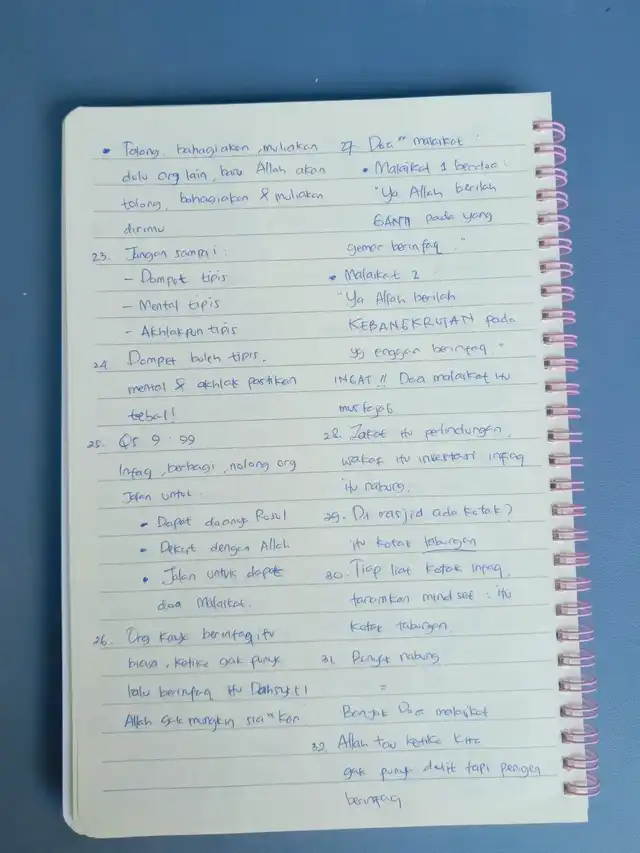 • Tolong, bahagiakan, muliakan
dulu org lain, baru Allah akan
tolong, bahagiakan & muliakan
dirimu
23. Jangan sampai :
- Dompet tipis
- Mental tipis
- Akhlakpun tipis
24. Dompet boleh tipis,
mental & akhlak pastikan
tebal!
25. QS 9 : 99
Infaq, berbagi, nolong org
Jalan untuk :
• Dapat doanya Rosul
• Dekat dengan Allah
• Jalan untuk dapat
doa Malaikat.
26. Org kaya berinfaq itu
biasa, ketika gak punya
lalu berinfaq itu Dahsyat!
Allah gak mungkin sia"kan
27. Doa" malaikat :
• Malaikat 1 berdoa :
"Ya Allah berilah
GANTI pada yang
gemar berinfaq."
• Malaikat 2
"Ya Allah berilah
KEBANGKRUTAN pada
yg enggan berinfaq"
INGAT !! Doa malaikat itu
mustajab
28. Zakat itu perlindungan,
wakaf itu investasi infaq
itu nabung.
29. Di masjid ada kotak?
itu kotak tabungan
30. Tiap liat kotak infaq,
tanamkan mindset : itu
kotak tabungan.
31. Banyak nabung
=
Banyak Doa malaikat
32. Allah tau ketika kita
gak punya duit tapi pengen
berinfaq